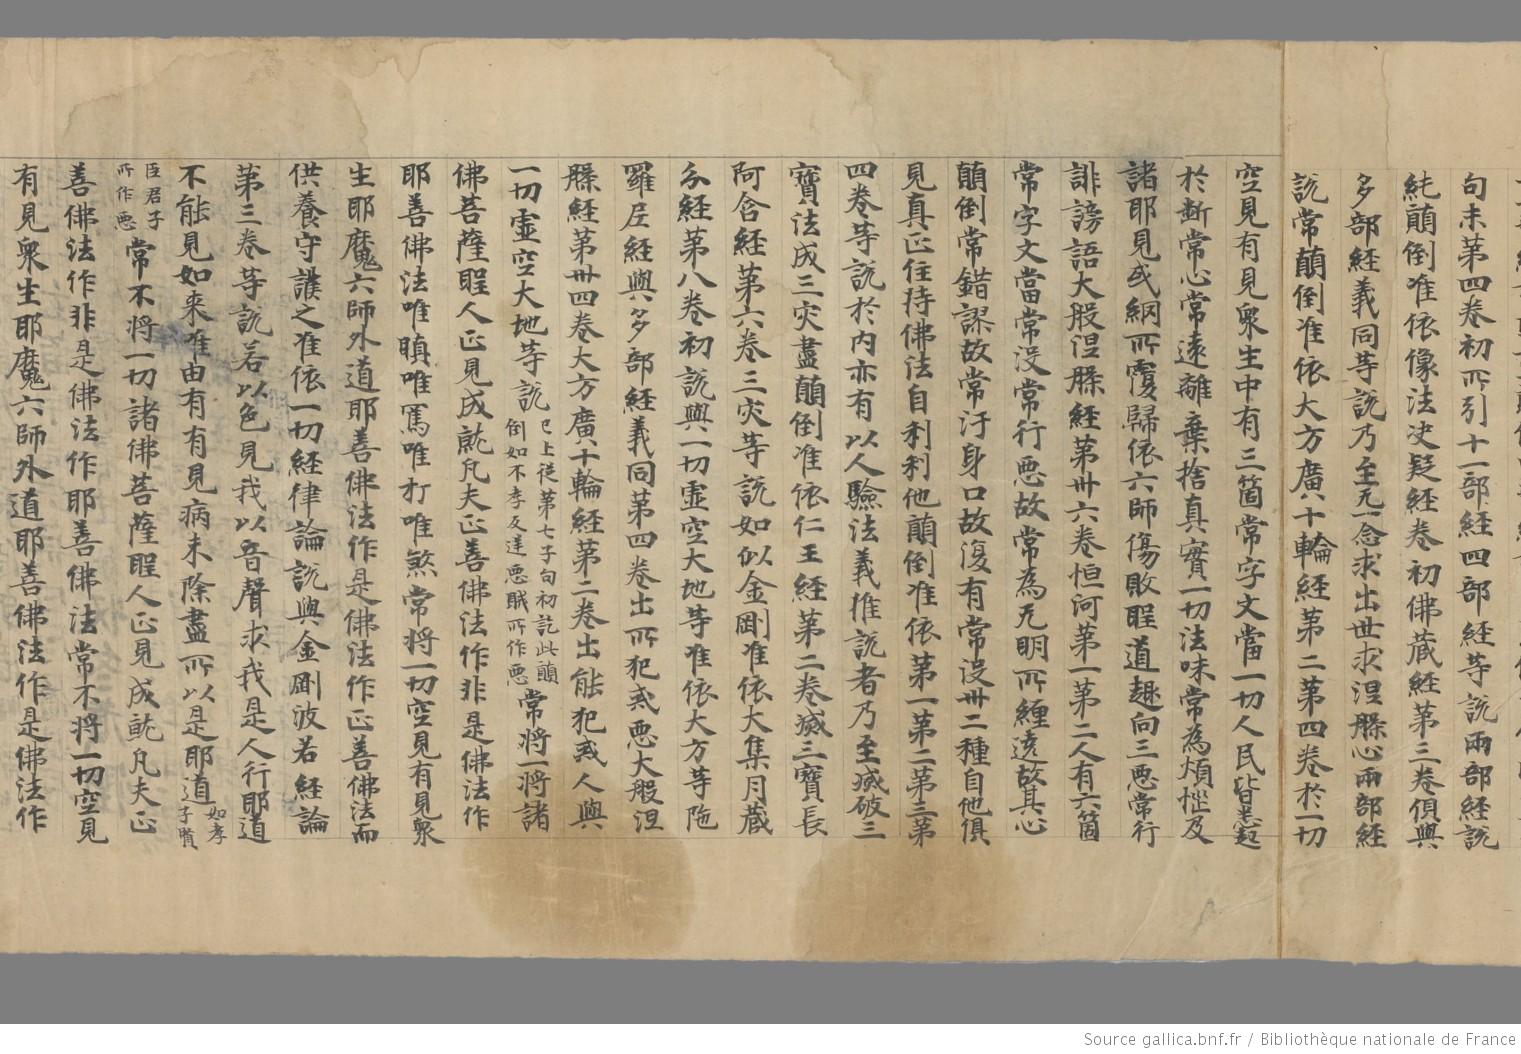 句末第四卷初所引十一部経四部経等說兩部経說
純顛倒准依像法决疑経卷初佛蔵経第三卷俱與
多部経義同等說乃至无一念求出世求涅槃心兩部経
說常顛倒准依大方廣十輪経第二第四卷於一切
空見有見衆生中有三箇常字文當一切人民皆悉起
於斷常心常遠離棄捨真實一切法味常為煩惱及
諸耶見或網所覆歸依六師傷敗聖道趣向三悪常行
誹謗語大般涅槃経第卅六卷恒河第一第二人有六箇
常字文當常没常行悪故常為无明所纏遶故其心
顛倒常錯謬故常汙身口故復有常没卅二種自他俱
見真正住持佛法自利利他顛倒准依第一第二第三第
四卷等說於內亦有以人驗法義推說者乃至滅破三
寶法成三灾盡顛倒准依仁王経第二卷滅三寶長
阿含経第六卷三灾等說如似金剛准依大集月蔵
分経第八卷初說與一切虛空大地等准依大方等陁
羅尼経與多部経義同第四卷出所犯或悪大般涅
槃経第卅四卷大方廣十輪経第二卷出能犯或人與
一切虛空大地等說已上従第七子句初訖此顛倒如不孝及逆悪賊所作悪常將一將諸
佛菩薩聖人正見成就凡夫正善佛法作非是佛法作
耶善佛法唯瞋唯罵唯打唯煞常將一切空見有見衆
生耶魔六師外道耶善佛法作是佛法作正善佛法而
供養守護之准依一切経律論說與金剛波若経論
第三卷等說若以色見我以音聲求我是人行耶道
不能見如来准由有有見病未除盡所以是耶道如孝子賢
臣君子所作悪常不將一切諸佛菩薩聖人正見成就凡夫正
善佛法作非是佛法作耶善佛法常不將一切空見
有見衆生耶魔六師外道耶善佛法作是佛法作
Source gallica.bnf.fr / Bibliothèque nationale de France